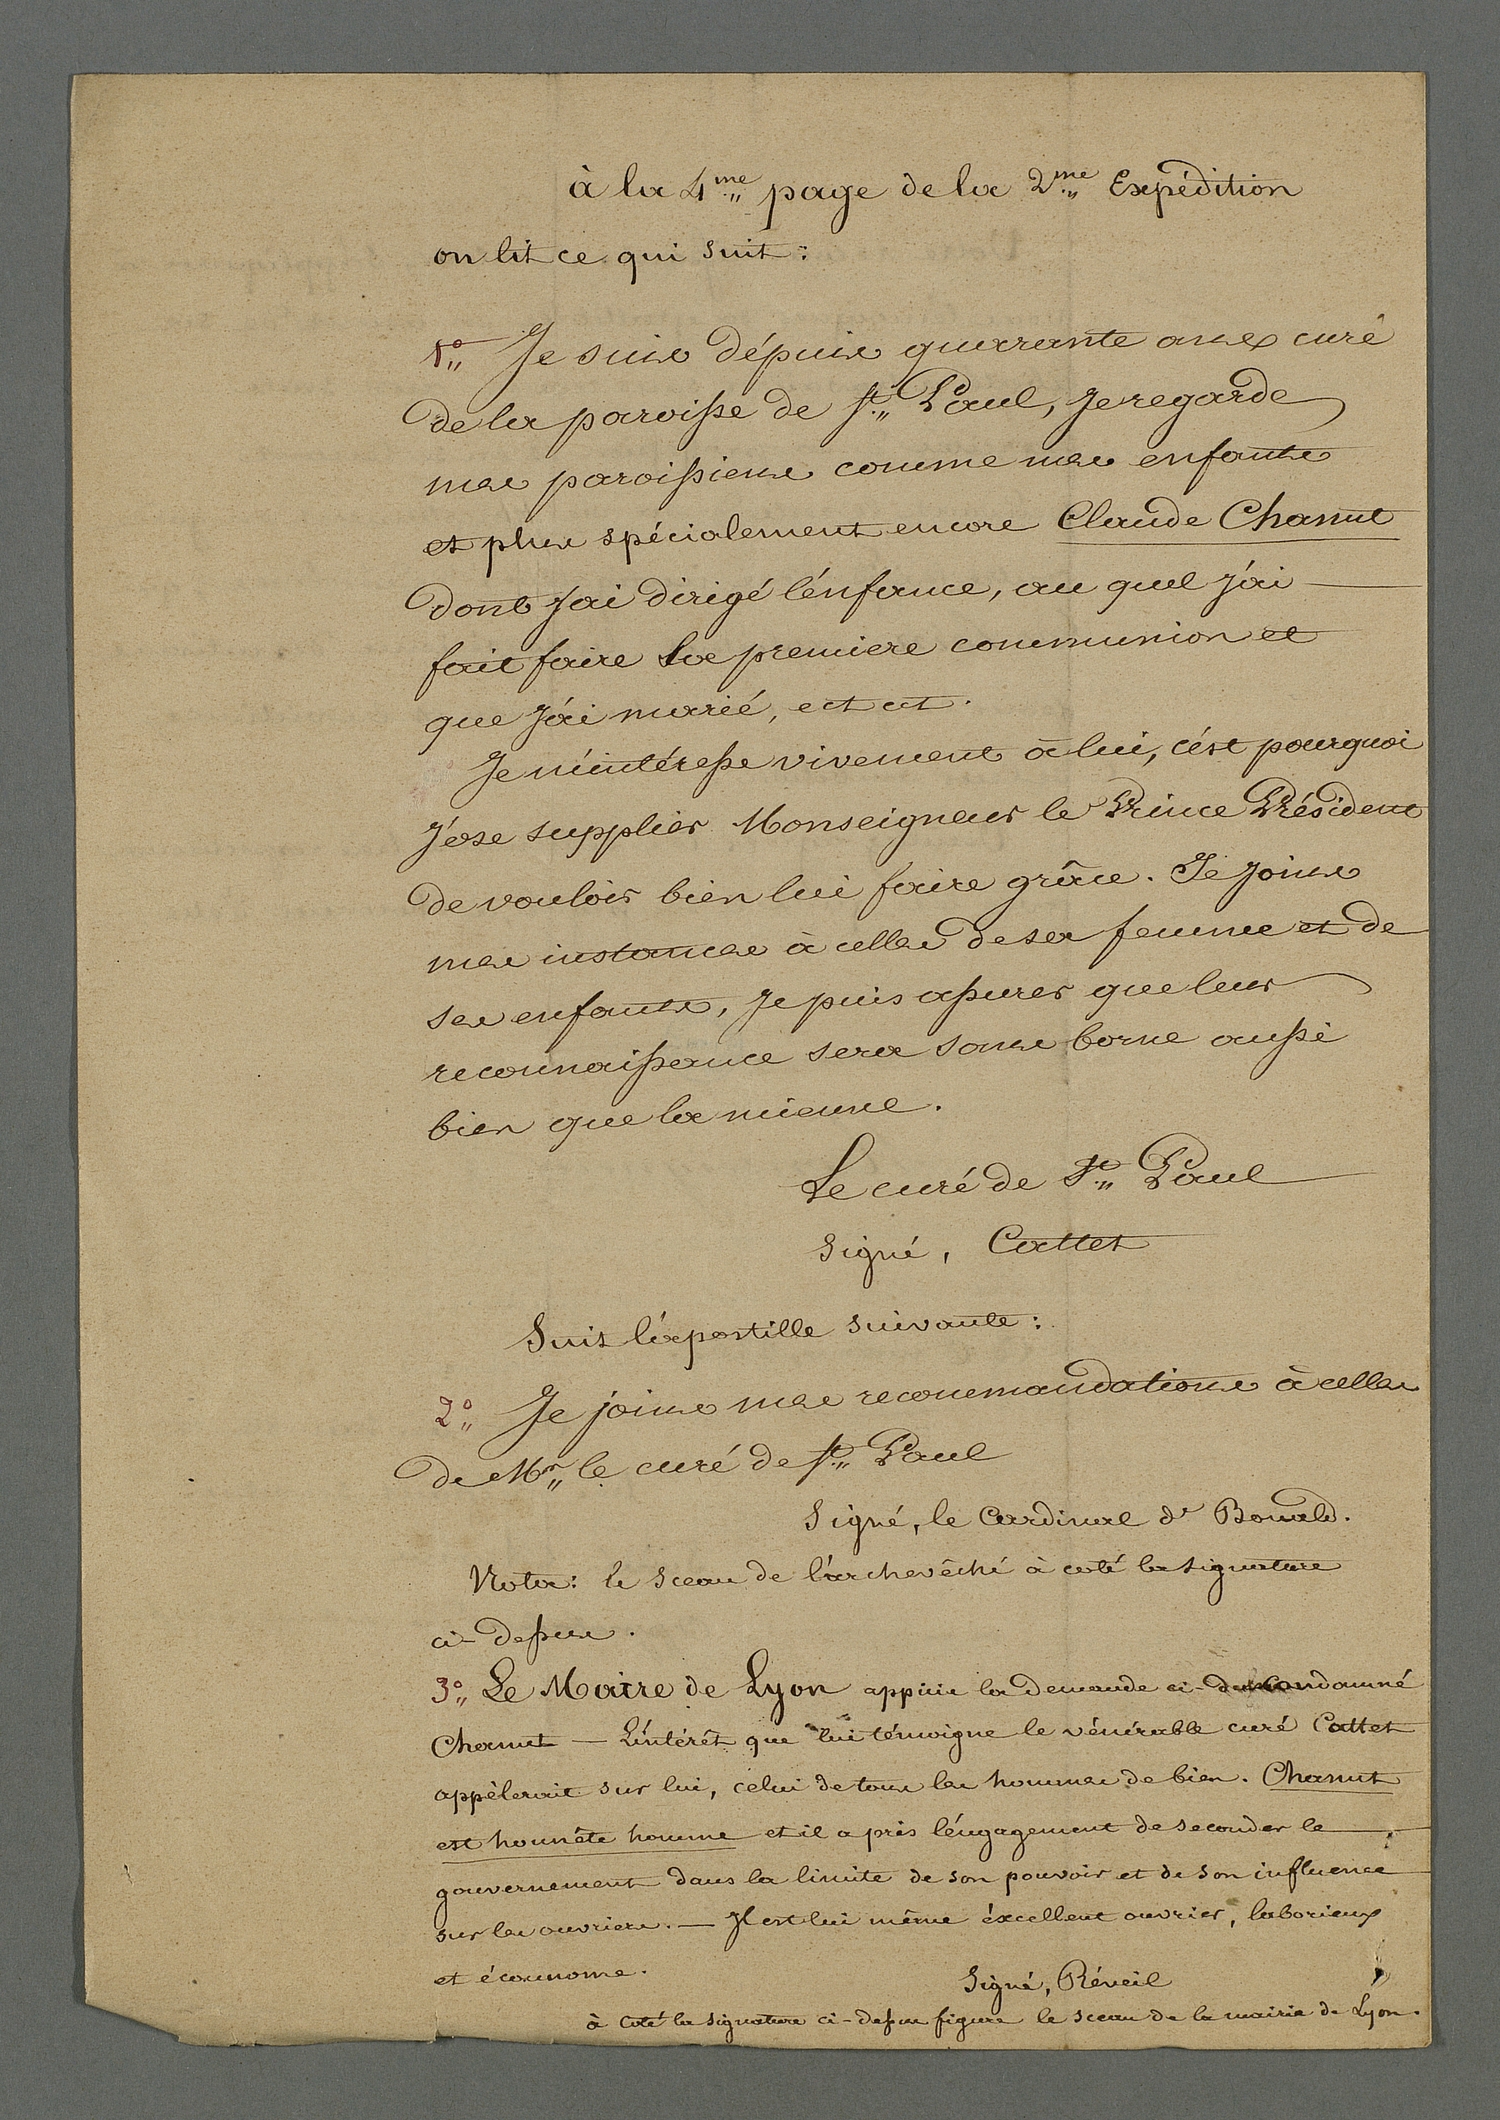 à la 4me page de la 2me Expédition
on lit ce qui suit :
1o Je suis dépuis quarante ans curé
de la paroisse de St Paul, Je regarde
mes paroissiens comme mes enfants
et plus spécialement encore Claude Chanut
dont J'ai dirigé l'énfance, au quel J'ai
fait faire La premiere communion et
que J'ai marié, ect ect.
Je m'intéresse vivement à lui, c'ést pourquoi
J'ose supplier Monseigneur le Prince Président
de vouloir bien lui faire grâce. Je Joins
mes instances à celles de sa femme et de
ses enfants, Je puis assurer que leur
reconnaissance sera sans borne aussi
bien que la mienne.
Le curé de St Paul
Signé, Cattet
Suit l'apostille suivante :
2o Je joins mes recommandations à celles
de Mr le curé de St Paul
Signé, le Cardinal de Bonald.
Nota : le Sceau de l'archevêché à coté la signature
ci-dessus.
3o Le Maire de Lyon appuie la demande ci-du condamné
Chanut — L'intérêt que lui témoigne le vénérable curé Cattet
appèlerait sur lui, celui de tous les hommes de bien. Chanut
est honnête homme et il a pris l'éngagement de seconder le
gouvernement dans la limite de son pouvoir et de son influence
sur les ouvriers. — Il est lui même éxcellent ouvrier, laborieux
et économe.
Signé, Réveil
à coté la signature ci-dessus figure le sceau de la mairie de Lyon.